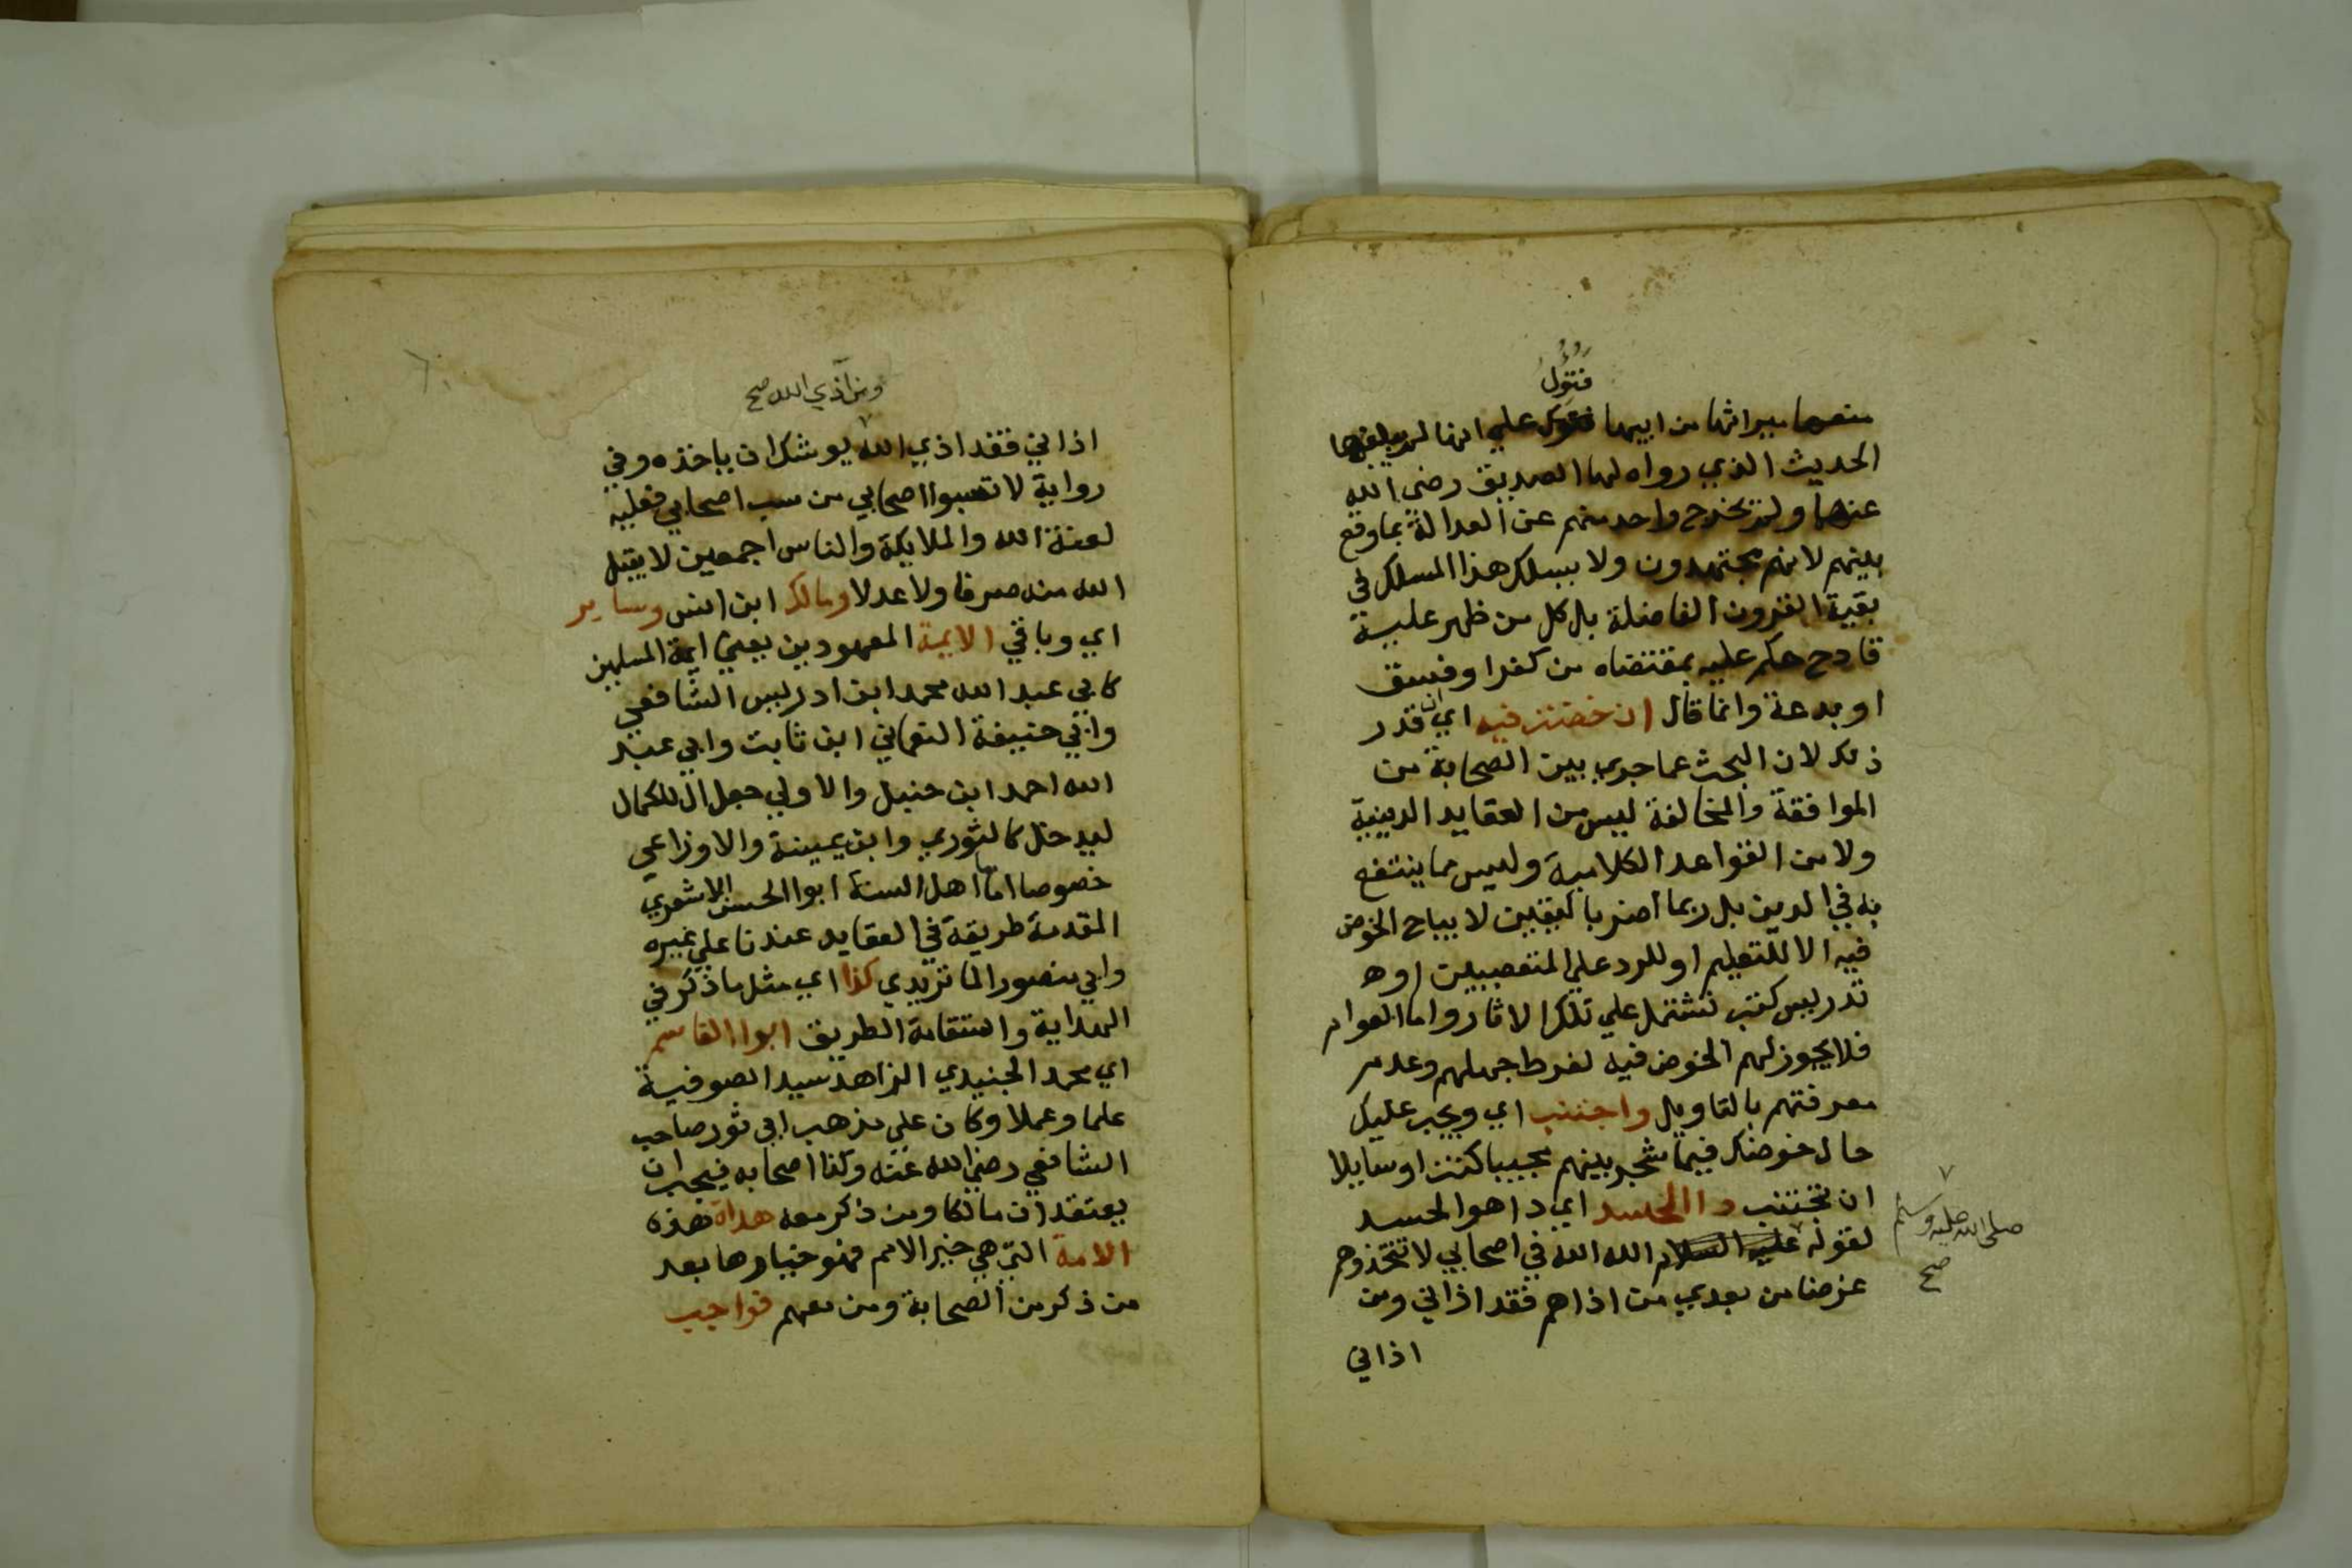 فتؤول
منعهما ميراثها من ابيها فتؤول على انها لم يبلغها
الحديث الذي رواه لها الصديق رضي الله
عنهما ولم يخرج واحد منهم عن العدالة بما وقع
بينهم لانهم مجتهدون ولا يسلك هذا المسلك في
بقية القرون الفاضلة بل كل من ظهر عليه
قادح حكم عليه بمقتضاه من كفرا وفسق
او بدعة وانما قال ان خضت فيه اي ان قدر
ذلك لان البحث عما جري بين الصحابة من
الموافقة والمخالفة ليس من العقايد الدينية
ولا من القواعد الكلامية وليس مما ينتفع
به في الدين بل ربما اضر باليقين لا يباح الخوض
فيه الا للتعليم او للرد علي المتعصبين او
تدريس كتب تشتمل علي تلك الاثار واما العوام
فلا يجوز لهم الخوض فيه لفرط جهلهم وعدم
معرفتهم بالتاويل واجتنب اي ويجب عليك
حال خوضك فيما شجر بينهم مجيبا كنت او سايلا
ان تجتنب دا الحسد اي دا هو الحسد
لقوله عليه السلام الله الله في اصحابي لا تتخذوهم
صلى الله عليه وسلم
صح
غرضا من بعدي من اذاهم فقد اذاني ومن
اذاني
ومن آذي الله صح
اذاني فقد اذي الله يوشك ان ياخذه وفي
رواية لا تسبوا اصحابي من سب اصحابي فعليه
لعنة الله والملايكة والناس اجمعين لا يقبل
الله منه صرفا ولا عدلا ومالك ابن انس وساير
اي وباقي الايمة المعهودين يعني ايمة المسلمين
كابي عبد الله محمد ابن ادريس الشافعي
وابي حنيفة النعماني ابن ثابت وابي عبد
الله احمد ابن حنبل والاولي جعل ال للكمال
ليدخل كالثوري وابن عيينة والاوزاعي
خصوصا امام اهل السنة ابوا الحسن الاشعري
المقدمة طريقة في العقايد عندنا علي غيره
وابي منصور الماتريدي كذا اي مثل ما ذكر في
الهداية واستقامة الطريق ابوا القاسم
اي محمد الجنيدي الزاهد سيد الصوفية
علما وعملا وكان على مذهب ابي ثور صاحب
الشافعي رضي الله عنه وكذا اصحابه فيجب ان
يعتقد ان مالكا ومن ذكر معه هداة هذه
الامة التي هي خير الامم فهو خيارها بعد
من ذكر من الصحابة ومن معهم فواجب